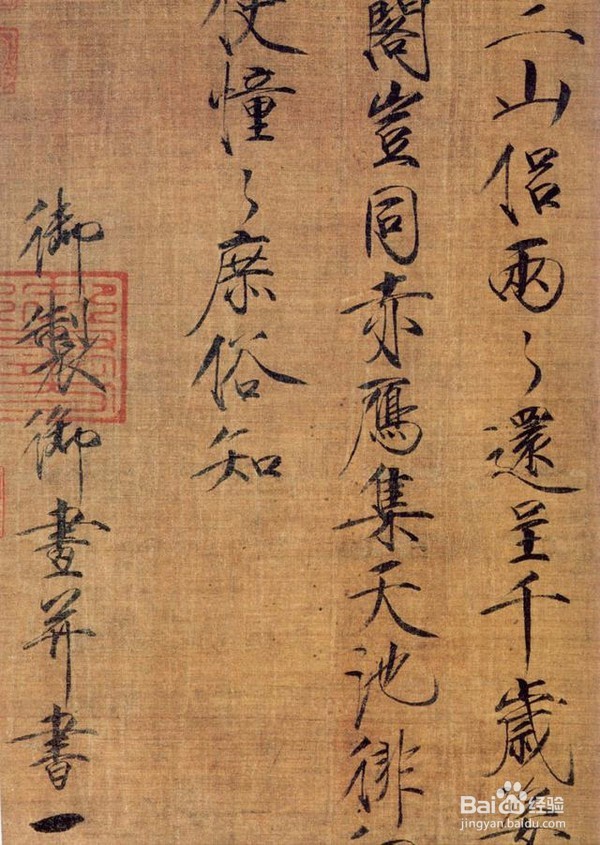 山侶兩々還呈千歲姿
閣豈同赤鴈集天池徘
使憧々庶俗知
御製御畫并書
Baidu经验
jingyan.baidu.com